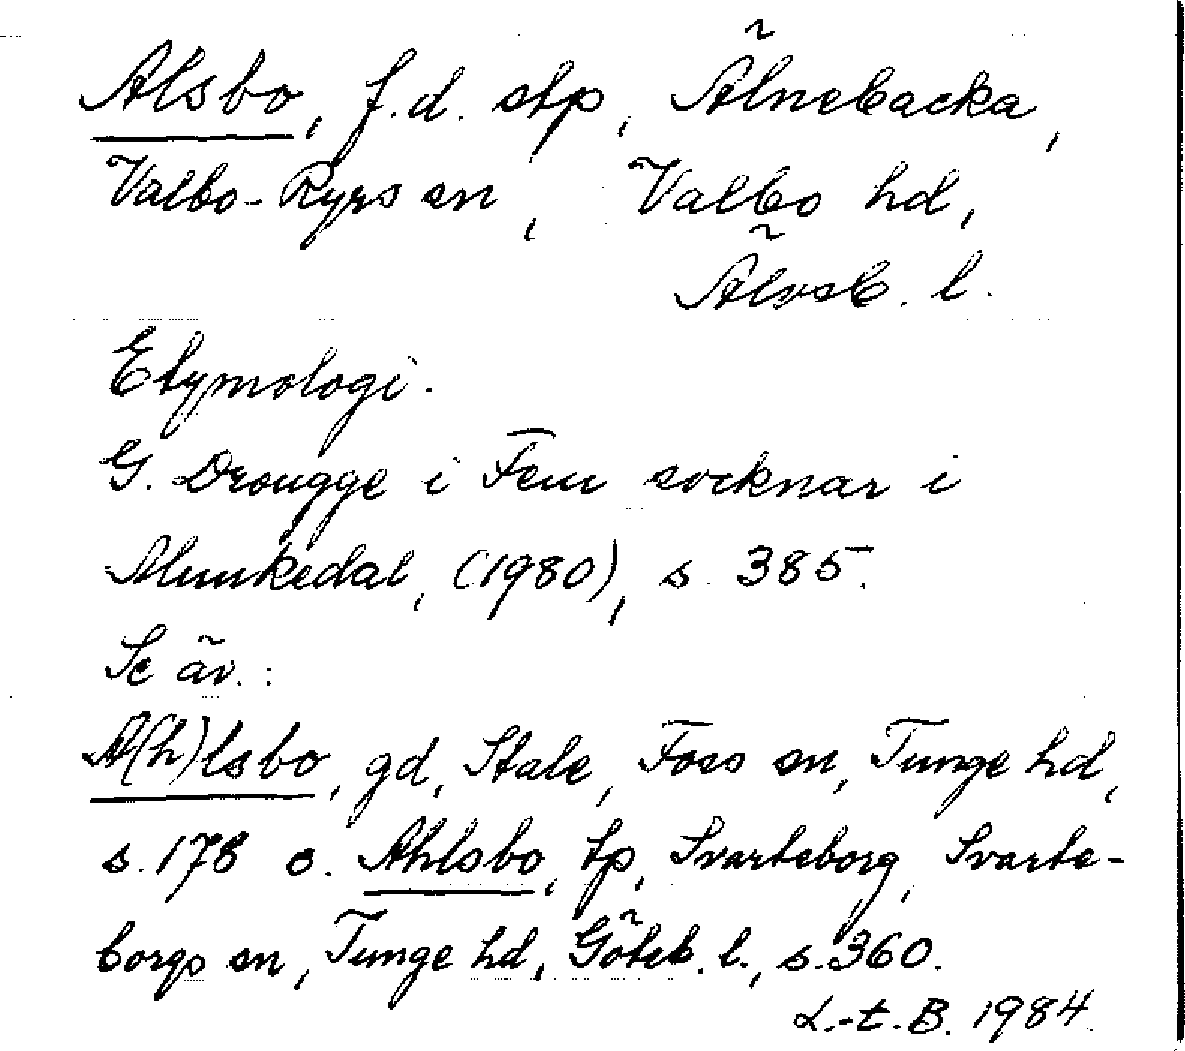 Alsbo, f.d. stp, Älnebacka,
Valbo-Ryrs sn, Valbo hd,
Älvsb. l.
Etymologi.
G. Drougge i Fem socknar i
Munkedal, (1980), s. 385.
Se äv.:
A(h)lsbo, gd, Stale, Foss sn, Tunge hd,
s. 178 o. Ahlsbo, tp, Svarteborg, Svarte-
borgs sn, Tunge hd, Göteb. l., s. 360.
L.-t. B. 1984.